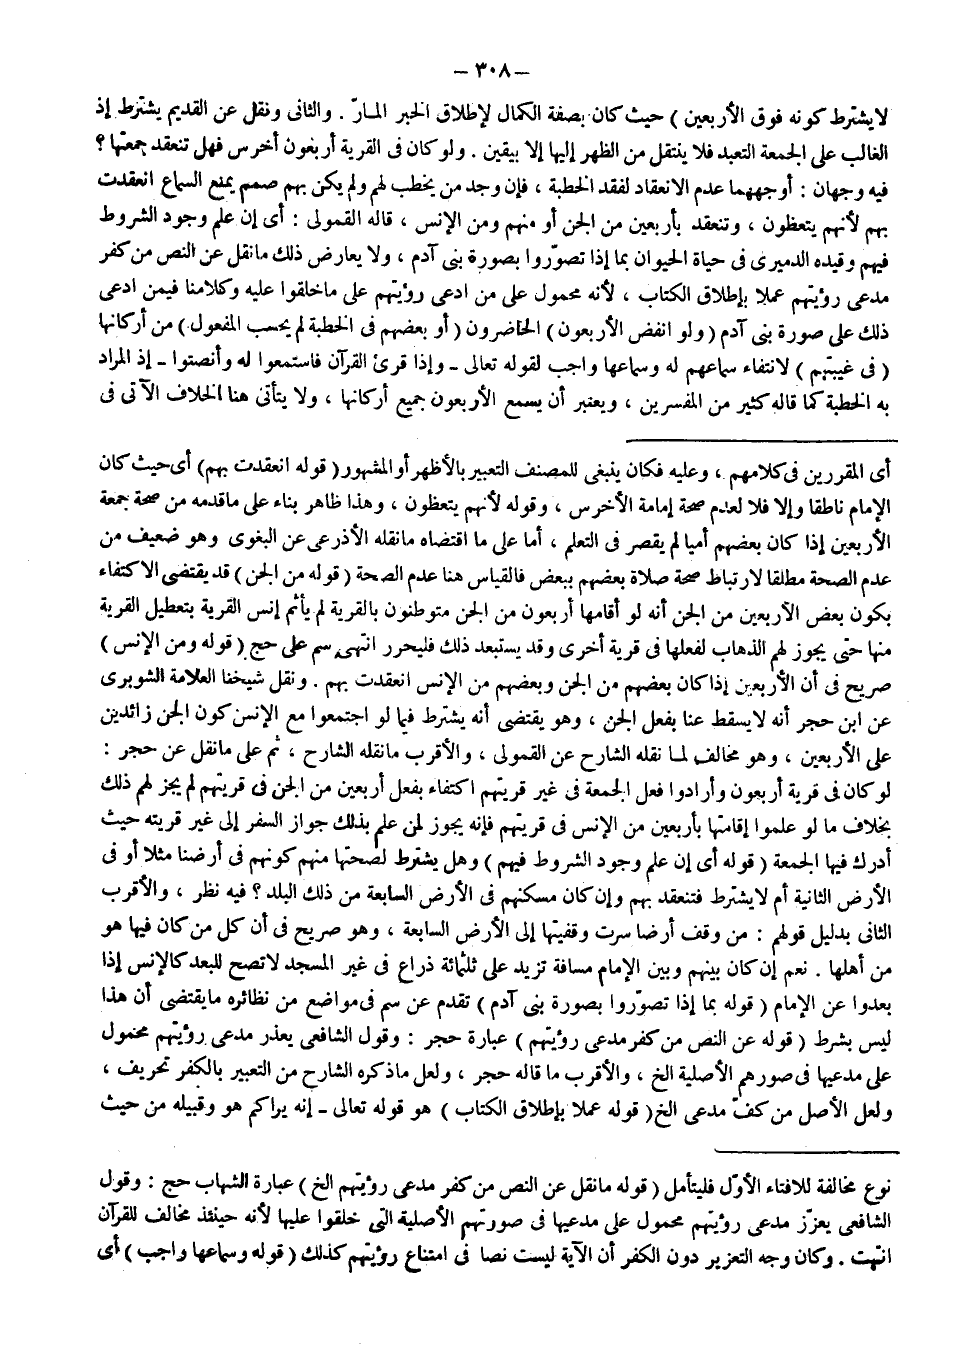 — ٣٠٨ —
لا يشترط كونه فوق الأربعين ) حيث كان بصفة الكمال لإطلاق الخبر المـارّ . والثانى ونقل عن القديم يشترط إذ
الغالب على الجمعة التعبد فلا ينتقل من الظهر إليها إلا بيقين . ولو كان فى القرية أربعون أخرس فهل تنعقد جمعتها ؟
فيه وجهان : أوجههما عدم الانعقاد لفقد الخطبة ، فإن وجد من يخطب لهم ولم يكن بهم صمم يمنع السماع انعقدت
بهم لأنهم يتعظون ، وتنعقد بأربعين من الجن أو منهم ومن الإنس ، قاله القمولى : أى إن علم وجود الشروط
فيهم وقيده الدميرى فى حياة الحيوان بما إذا تصوّروا بصورة بنى آدم ، ولا يعارض ذلك مانقل عن النص من كفر
مدعى رؤيتهم عملا بإطلاق الكتاب ، لأنه محمول على من ادعى رؤيتهم على ماخلقوا عليه وكلامنا فيمن ادعى
ذلك على صورة بنى آدم ( ولو انفض الأربعون ) الحاضرون ( أو بعضهم فى الخطبة لم يحسب المفعول ) من أركانها
( فى غيبتهم ) لانتفاء سماعهم له وسماعها واجب لقوله تعالى ـ وإذا قرئ القرآن فاستمعوا له وأنصتوا ـ إذ المراد
به الخطبة كما قاله كثير من المفسرين ، ويعتبر أن يسمع الأربعون جميع أركانها ، ولا يتأتى هنا الخلاف الآتى فى
أى المقررين فى كلامهم ، وعليه فكان ينبغى للمصنف التعبير بالأظهر أو المشهور ( قوله انعقدت بهم ) أى حيث كان
الإمام ناطقا وإلا فلا لعدم صحة إمامة الأخرس ، وقوله لأنهم يتعظون ، وهذا ظاهر بناء على ماقدمه من صحة جمعة
الأربعين إذا كان بعضهم أميا لم يقصر فى التعلم ، أما على ما اقتضاه مانقله الأذرعى عن البغوى وهو ضعيف من
عدم الصحة مطلقا لارتباط صحة صلاة بعضهم ببعض فالقياس هنا عدم الصحة ( قوله من الجن ) قد يقتضى الاكتفاء
بكون بعض الأربعين من الجن أنه لو أقامها أربعون من الجن متوطنون بالقرية لم يأثم إنس القرية بتعطيل القرية
منها حتى يجوز لهم الذهاب لفعلها فى قرية أخرى وقد يستبعد ذلك فليحرر انتهى سم على حج ( قوله ومن الإنس )
صريح فى أن الأربعين إذا كان بعضهم من الجن وبعضهم من الإنس انعقدت بهم . ونقل شيخنا العلامة الشوبرى
عن ابن حجر أنه لايسقط عنا بفعل الجن ، وهو يقتضى أنه يشترط فيما لو اجتمعوا مع الإنس كون الجن زائدين
على الأربعين ، وهو مخالف لمـا نقله الشارح عن القمولى ، والأقرب مانقله الشارح ، ثم على مانقل عن حجر :
لو كان فى قرية أربعون وأرادوا فعل الجمعة فى غير قريتهم اكتفاء بفعل أربعين من الجن فى قريتهم لم يجز لهم ذلك
بخلاف ما لو علموا إقامتها بأربعين من الإنس فى قريتهم فإنه يجوز لمن علم بذلك جواز السفر إلى غير قريته حيث
أدرك فيها الجمعة ( قوله أى إن علم وجود الشروط فيهم ) وهل يشترط لصحتها منهم كونهم فى أرضنا مثلا أو فى
الأرض الثانية أم لا يشترط فتنعقد بهم وإن كان مسكنهم فى الأرض السابعة من ذلك البلد ؟ فيه نظر ، والأقرب
الثانى بدليل قولهم : من وقف أرضا سرت وقفيتها إلى الأرض السابعة ، وهو صريح فى أن كل من كان فيها هو
من أهلها . نعم إن كان بينهم وبين الإمام مسافة تزيد على ثلثمائة ذراع فى غير المسجد لاتصح للبعد كالإنس إذا
بعدوا عن الإمام ( قوله بما إذا تصوّروا بصورة بنى آدم ) تقدم عن سم فى مواضع من نظائره مايقتضى أن هذا
ليس بشرط ( قوله عن النص من كفر مدعى رؤيتهم ) عبارة حجر : وقول الشافعى يعذر مدعى رؤيتهم محمول
على مدعيها فى صورهم الأصلية الخ ، والأقرب ما قاله حجر ، ولعل ماذكره الشارح من التعبير بالكفر تحريف ،
ولعل الأصل من كفّ مدعى الخ ( قوله عملا بإطلاق الكتاب ) هو قوله تعالى ـ إنه يراكم هو وقبيله من حيث
نوع مخالفة للافتاء الأوّل فليتأمل ( قوله مانقل عن النص من كفر مدعى رؤيتهم الخ ) عبارة الشهاب حج : وقول
الشافعى يعزّر مدعى رؤيتهم محمول على مدعيها فى صورتهم الأصلية التى خلقوا عليها لأنه حينئذ مخالف للقرآن
انتهت . وكان وجه التعزير دون الكفر أن الآية ليست نصا فى امتناع رؤيتهم كذلك ( قوله وسماعها واجب ) أى